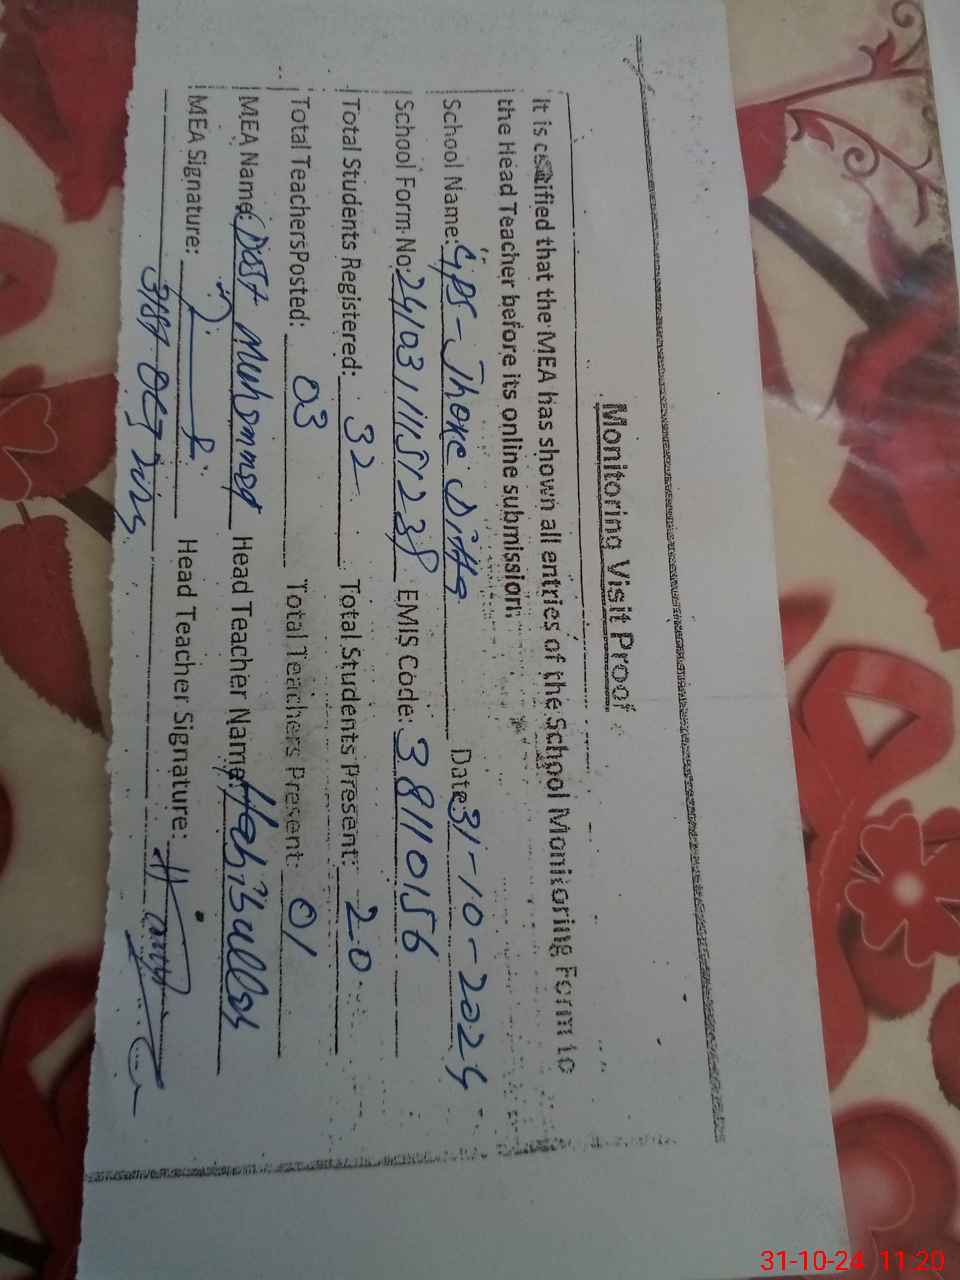 Monitoring Visit Proof
It is certified that the MEA has shown all entries of the School Monitoring Form to
the Head Teacher before its online submission.
School Name: GPS - Jhoke Ditta Date: 31-10-2024
School Form No: 24103111515238 EMIS Code: 38110156
Total Students Registered: 32 Total Students Present: 20
Total Teachers Posted: 03 Total Teachers Present: 01
MEA Name: Dost Muhammad Head Teacher Name: Habibullah
MEA Signature: Head Teacher Signature:
31-10-24 11:20